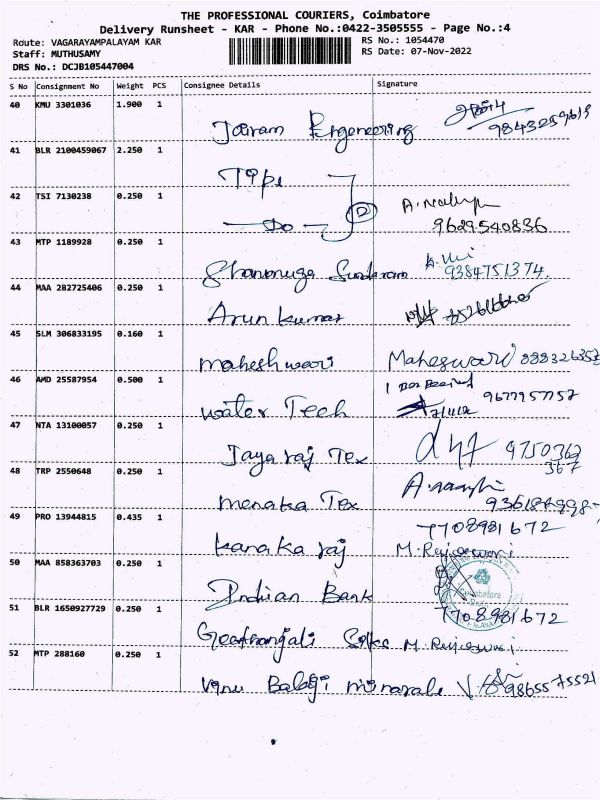 THE PROFESSIONAL COURIERS, Coimbatore
Delivery Runsheet - KAR - Phone No.:0422-3505555 - Page No.:4
Route: VAGARAYAMPALAYAM KAR
RS No.: 1054470
Staff: MUTHUSAMY
RS Date: 07-Nov-2022
DRS No.: DCJB105447004
S No Consignment No Weight PCS Consignee Details Signature
40 KMU 3301036 1.900 1
Jairam Engeneering 9843259613
41 BLR 2100459067 2.250 1
42 TSI 7130238 0.250 1
Do 2 9629540836
43 MTP 1189928 0.250 1
Shanmuga Sundaram 9384751374.
44 MAA 282725406 0.250 1
Arun kumar
45 SLM 306833195 0.160 1
maheshwari Maheswari 888326353
46 AMD 25587954 0.500 1
1 Box Received
water Tech 9677957757
47 NTA 13100057 0.250 1
Jayaraj Tex 9750362
367
48 TRP 2550648 0.250 1
menaka Tex
49 PRO 13944815 0.435 1
7708981672
kanaka raj M. Rajeswari
50 MAA 858363703 0.250 1
Indian Bank Coimbatore
51 BLR 1650927729 0.250 1
7708981672
Geethanjali Silks M. Rajeswari
52 MTP 288160 0.250 1
Vinu Balaji minarals 9865575521